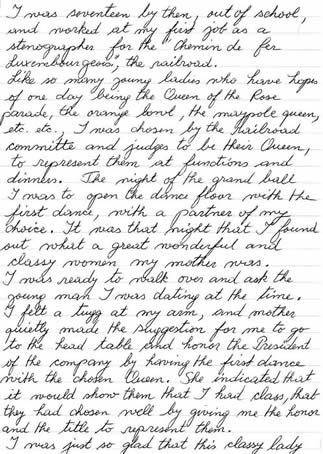 I was seventeen by then, out of school,
and worked at my first job as a
stenographer for the Chemin de fer
Luxembourgeois", the railroad.
Like so many young ladies who have hopes
of one day being the Queen of the Rose
parade, the orange bowl, the maypole queen,
etc. etc., I was chosen by the railroad
committe and judges to be their Queen,
to represent them at functions and
dinners. The night of the grand ball
I was to open the dance floor with the
first dance, with a partner of my
choice. It was that night that I found
out what a great wonderful and
classy women my mother was.
I was ready to walk over and ask the
young man I was dating at the time.
I felt a tugg at my arm, and mother
quietly made the suggestion for me to go
to the head table and honor the President
of the company by having the first dance
with the chosen Queen. She indicated that
it would show them that I had class, that
they had chosen well by giving me the honor
and the title to represent them.
I was just so glad that this classy lady